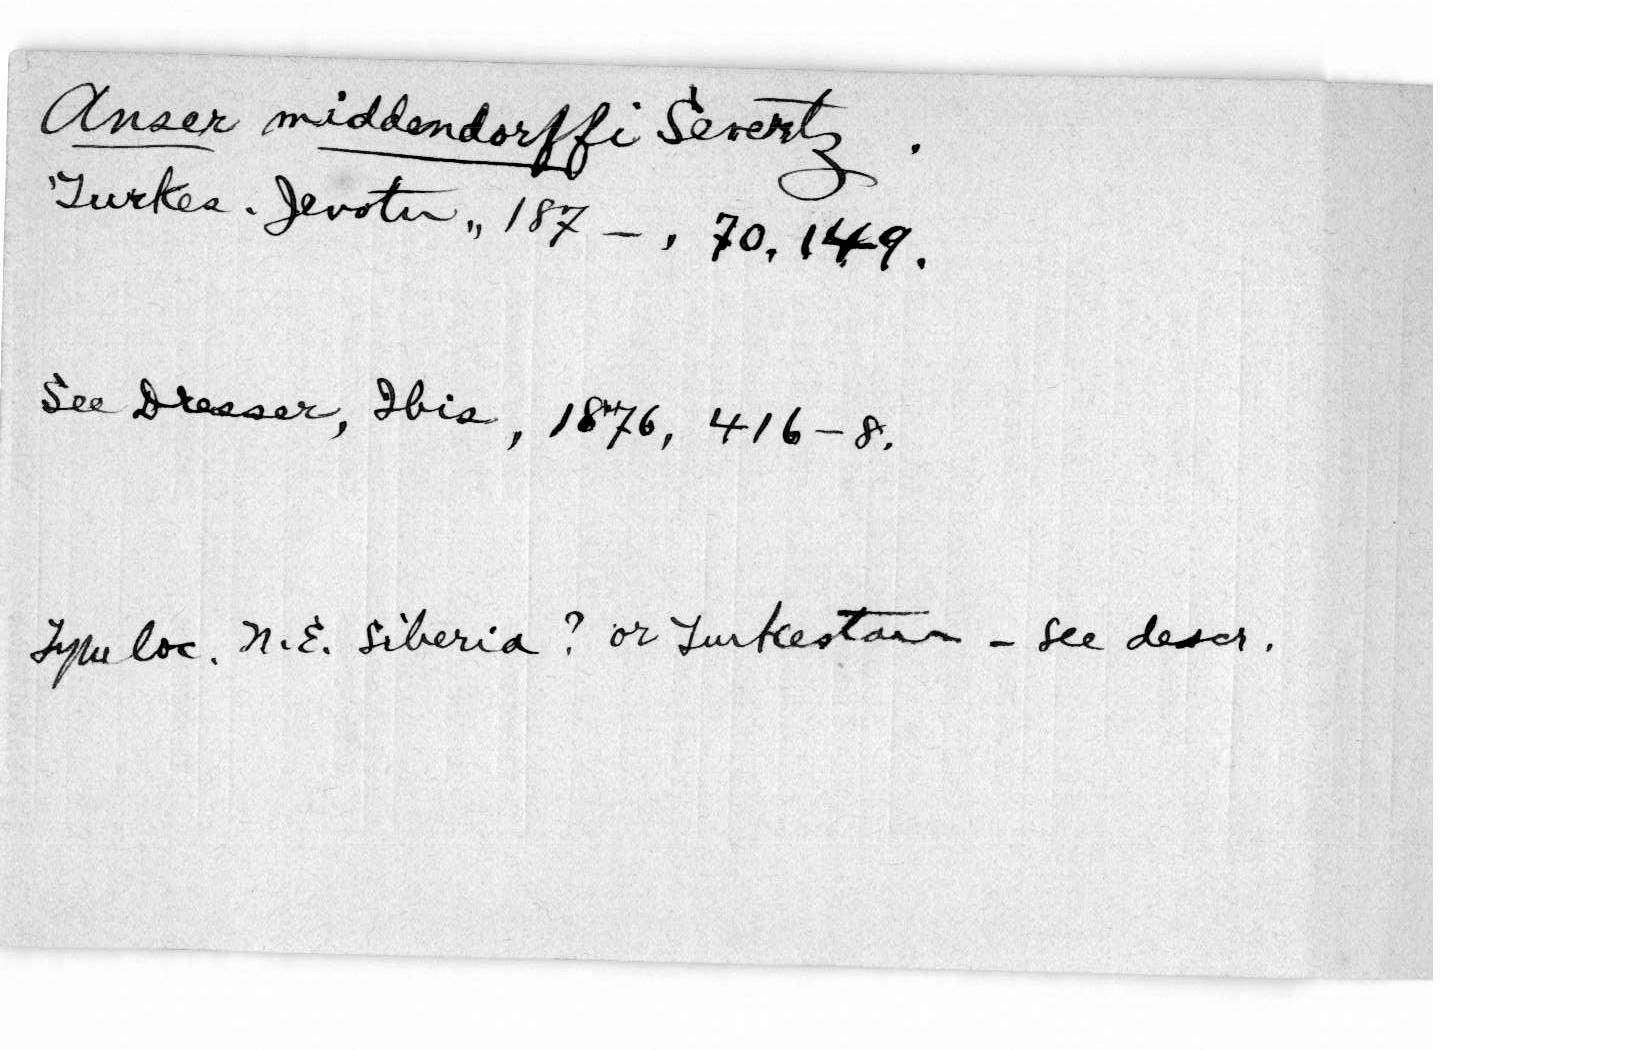 Anser middendorffi Severtz.
"Turkes. Jevotn", 187-, 70, 149.
See Dresser, Ibis, 1876, 416-8.
Type loc. N.E. Siberia? or Turkestan - see descr.